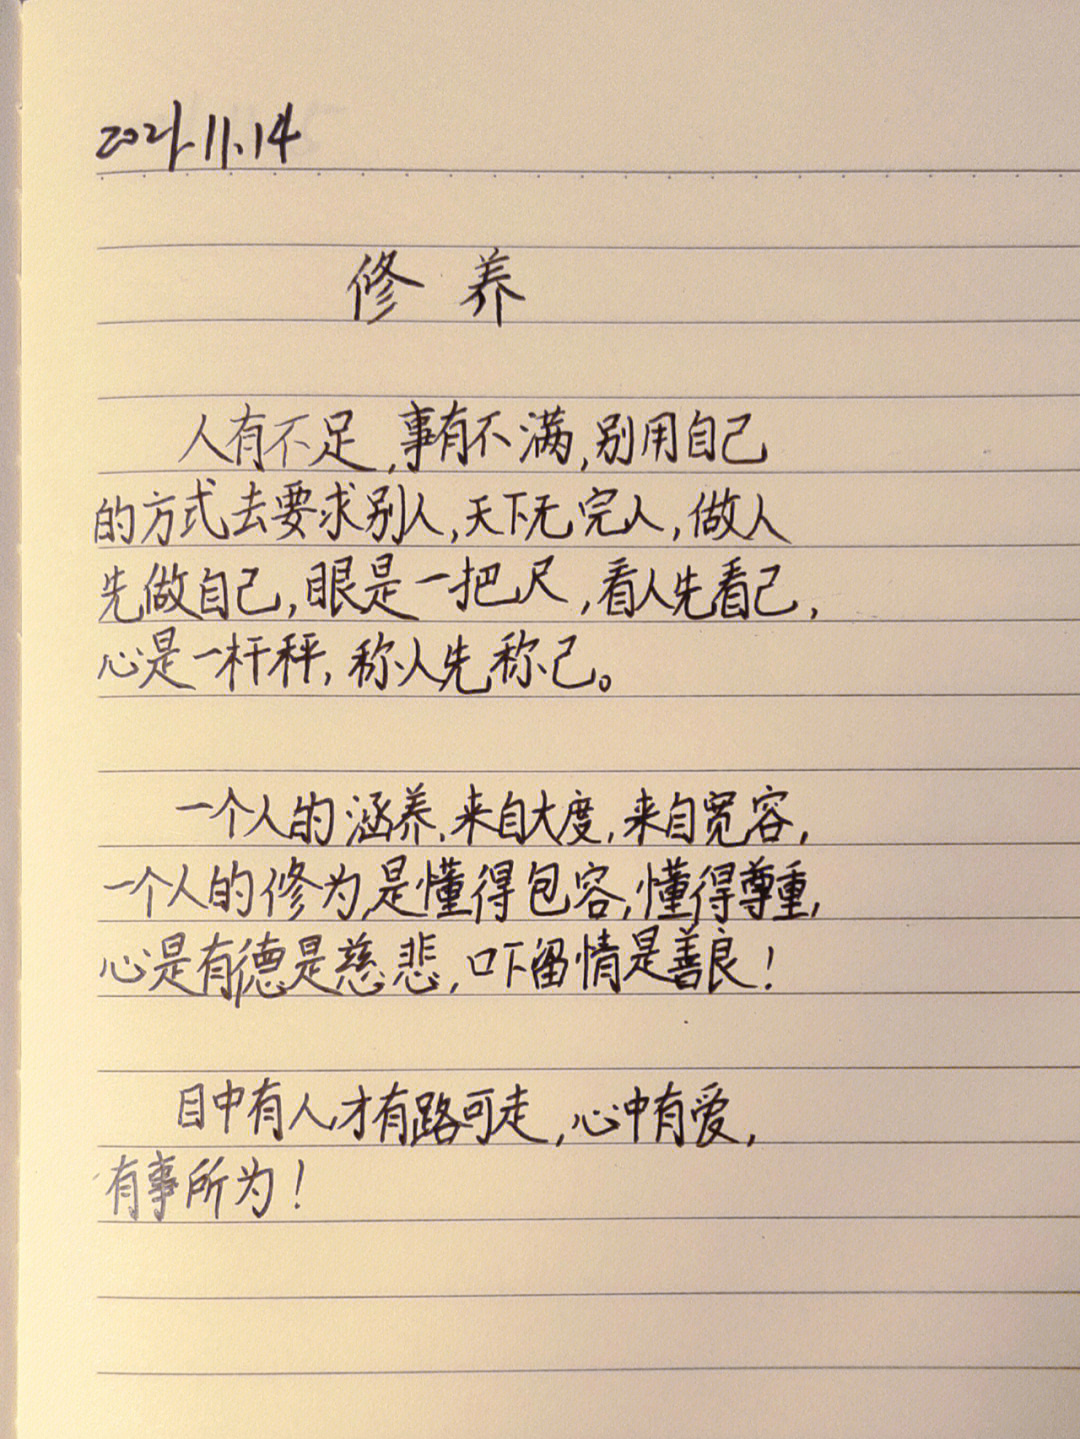 2021.11.14
修养
人有不足,事有不满,别用自己
的方式去要求别人,天下无完人,做人
先做自己,眼是一把尺,看人先看己,
心是一杆秤,称人先称己。
一个人的涵养,来自大度,来自宽容,
一个人的修为,是懂得包容,懂得尊重,
心是有德是慈悲,口下留情是善良!
目中有人,才有路可走,心中有爱,
有事所为!